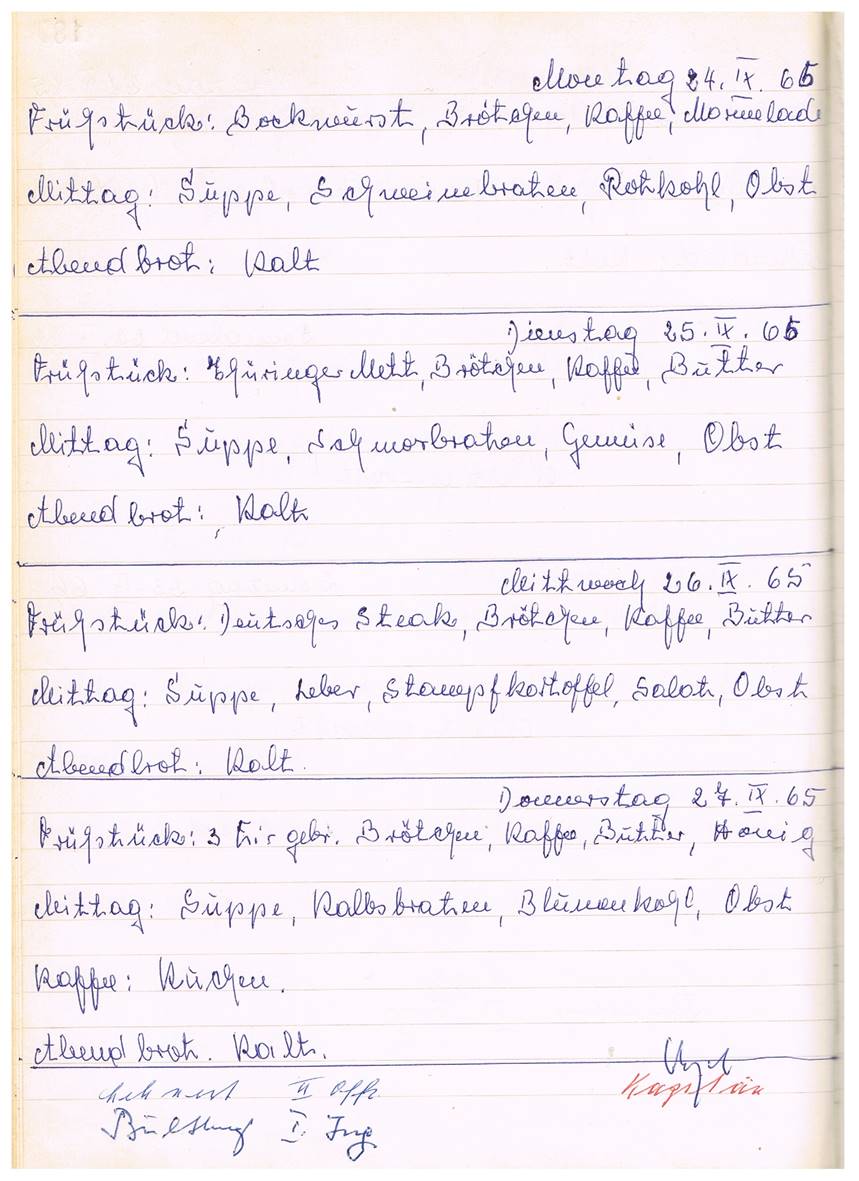 Montag 24. IX. 65
Frühstück: Bockwurst, Brötchen, Kaffee, Marmelade
Mittag: Suppe, Schweinebraten, Rotkohl, Obst
Abendbrot: Kalt
Dienstag 25. IX. 65
Frühstück: Thüringer Mett, Brötchen, Kaffee, Butter
Mittag: Suppe, Schmorbraten, Gemüse, Obst
Abendbrot: Kalt
Mittwoch 26. IX. 65
Frühstück: Deutsches Steak, Brötchen, Kaffee, Butter
Mittag: Suppe, Leber, Stampfkartoffel, Salat, Obst
Abendbrot: Kalt.
Donnerstag 27. IX. 65
Frühstück: 3 Eier gebr. Brötchen, Kaffee, Butter, Honig
Mittag: Suppe, Kalbsbraten, Blumenkohl, Obst
Kaffee: Kuchen.
Abendbrot. Kalt.
Kapitän
II Offz.
I. Ing.